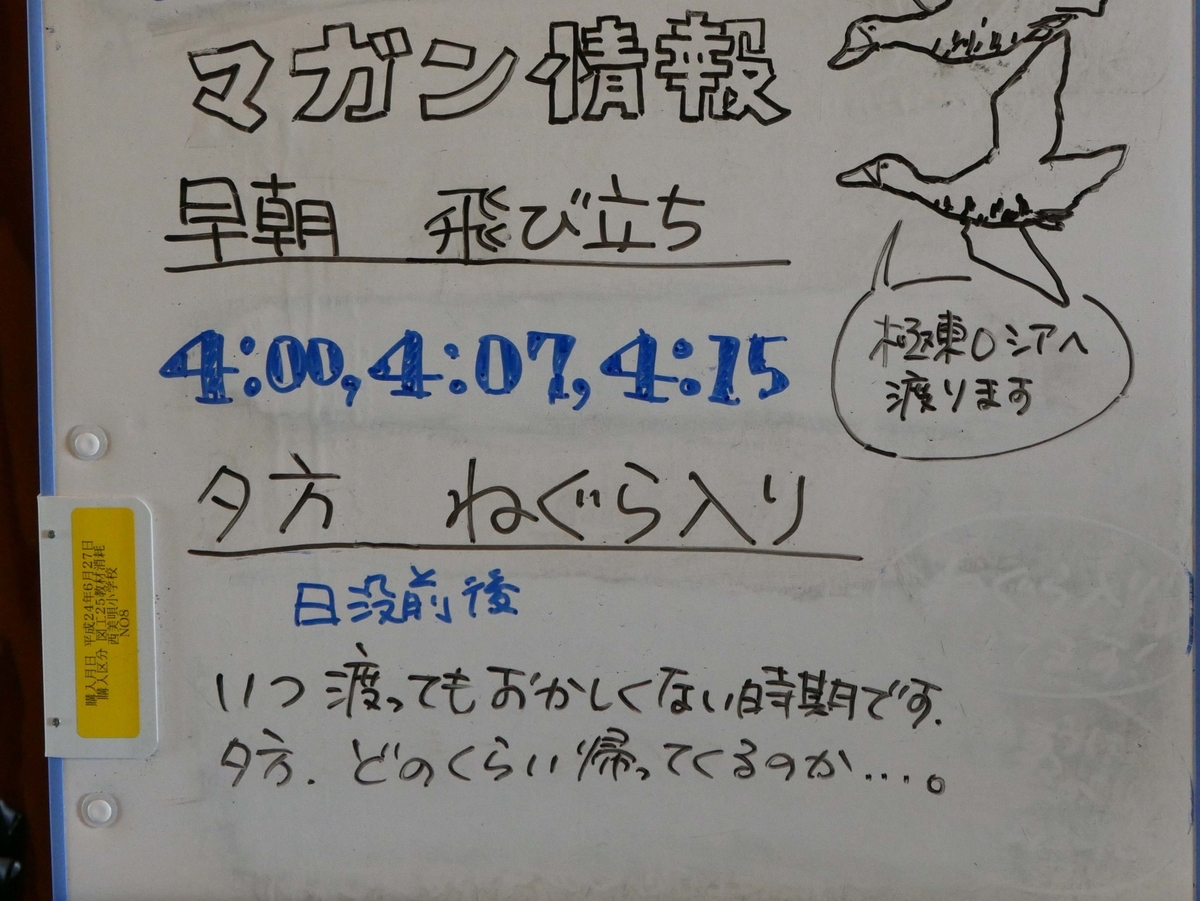 マガン情報
早朝　飛び立ち
4:00, 4:07, 4:15
極東ロシアへ
渡ります
夕方　ねぐら入り
日没前後
いつ渡ってもおかしくない時期です.
夕方. どのくらい帰ってくるのか…。
購入月日 平成24年6月27日
購入区分 図工25教材消耗
西美唄小学校
NO8